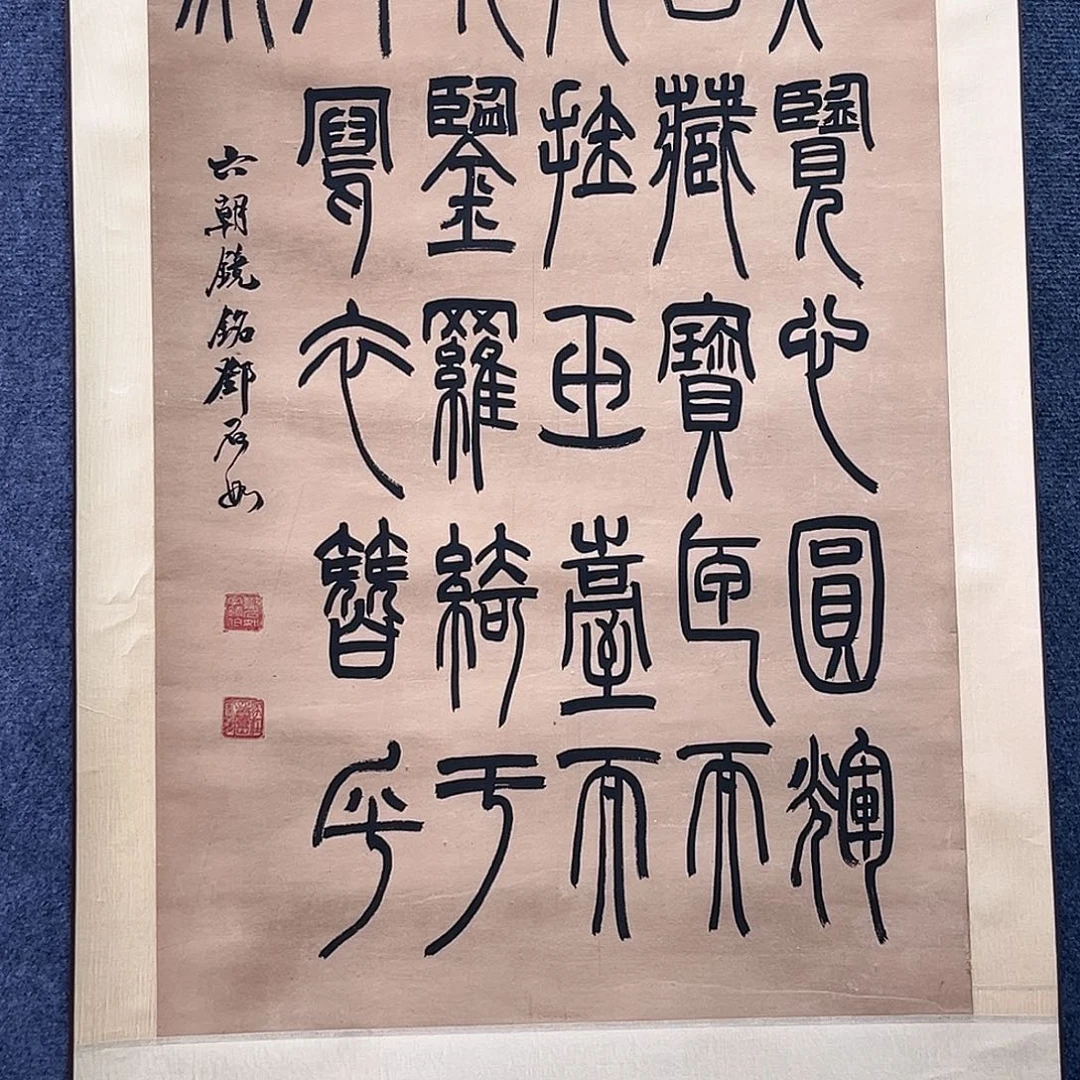 覽心圓輝
藏寶匣而
挂玉臺而
鑒羅綺于
寫衣簪乎
六朝鏡銘鄧石如